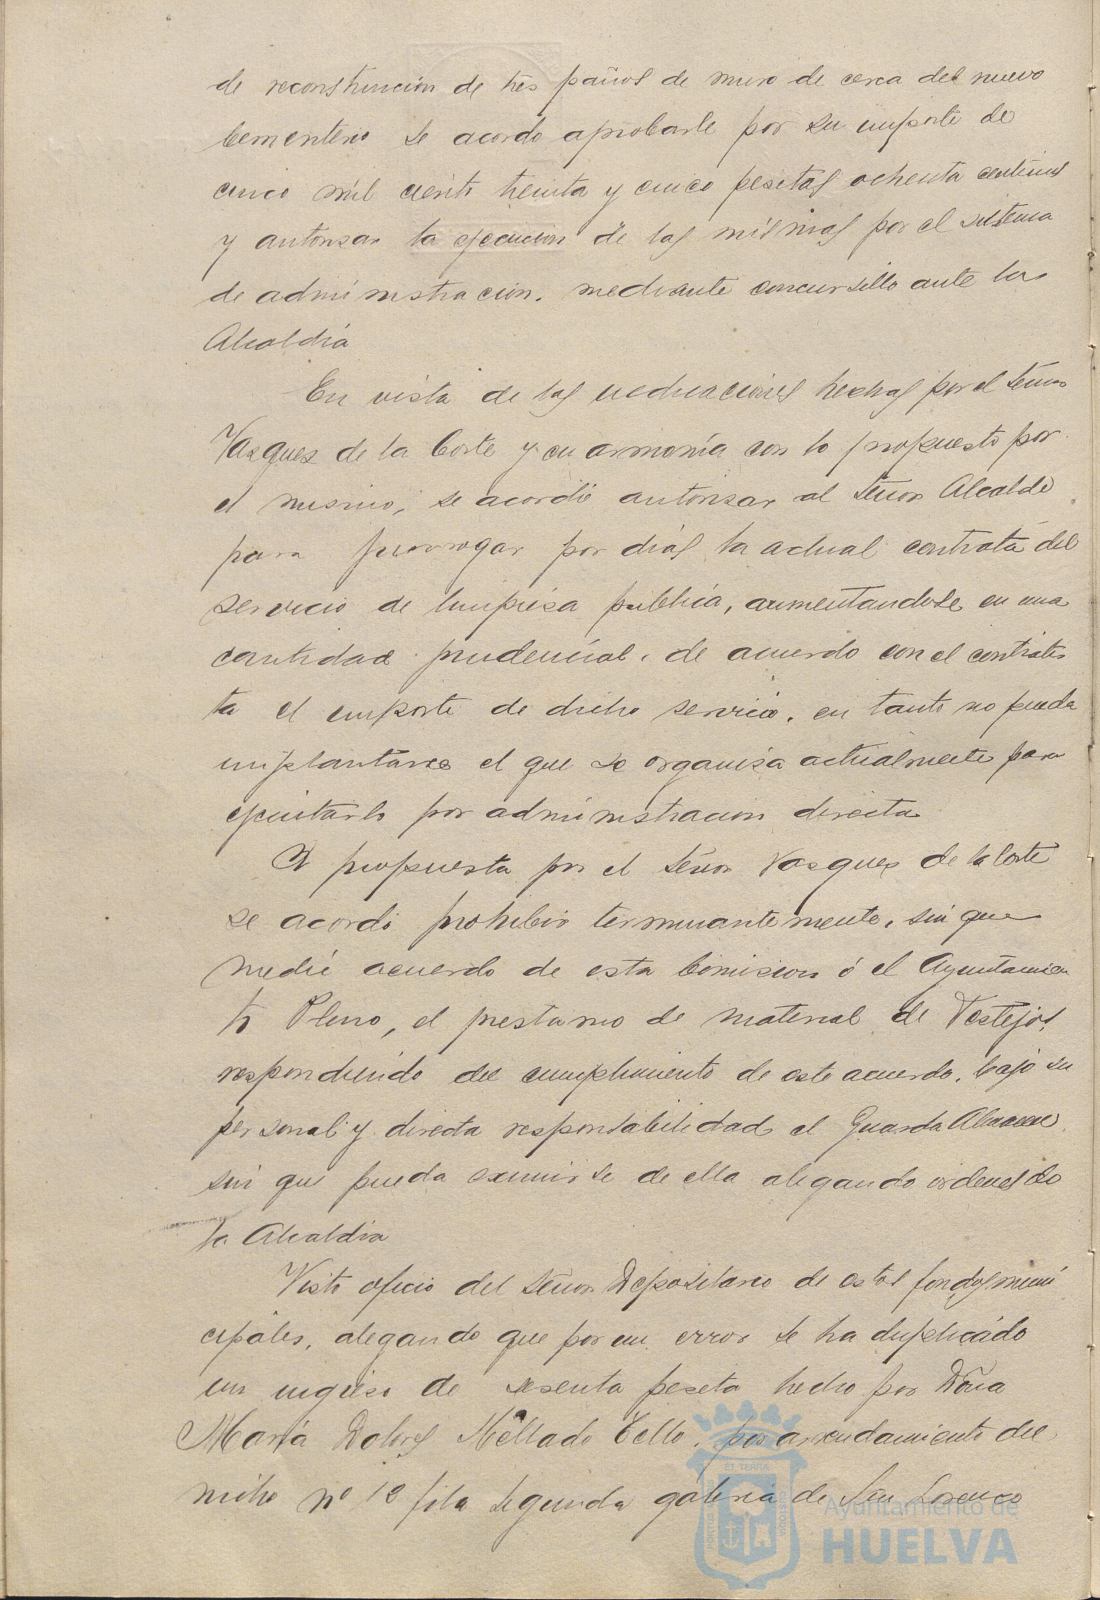 de reconstrucción de tres paños de muro de cerca del nuevo
Cementerio se acordó aprobarle por su importe de
cinco mil ciento treinta y cinco pesetas ochenta centimos
y autorizar la ejecucion de las mismas por el sistema
de administracion, mediante concursillo ante la
Alcaldía
En vista de las indicaciones hechas por el Señor
Vazquez de la Corte y en armonía con lo propuesto por
el mismo, se acordó autorizar al Señor Alcalde
para prorrogar por dias la actual contrata del
servicio de limpieza publica, aumentandose en una
cantidad prudencial, de acuerdo con el contratis
ta el importe de dicho servicio, en tanto no pueda
implantarse el que se organiza actualmente para
ejecutarlo por administracion directa
A propuesta por el Señor Vazquez de la Corte
se acordó prohibir terminantemente, sin que
medie acuerdo de esta Comision ó el Ayuntamien
to Pleno, el prestamo de material de Festejos,
respondiendo del cumplimiento de este acuerdo, bajo su
personal y directa responsabilidad el Guarda Almacen
sin que pueda eximirse de ella alegando ordenes de
la Alcaldía
Visto oficio del Señor Depositario de estos fondos muni
cipales, alegando que por un error se ha duplicado
un ingreso de sesenta peseta hecho por Doña
María Dolores Mellado Tello, por arrendamiento del
nicho nº fila segunda galeria de San Lorenzo
Ayuntamiento de
HUELVA